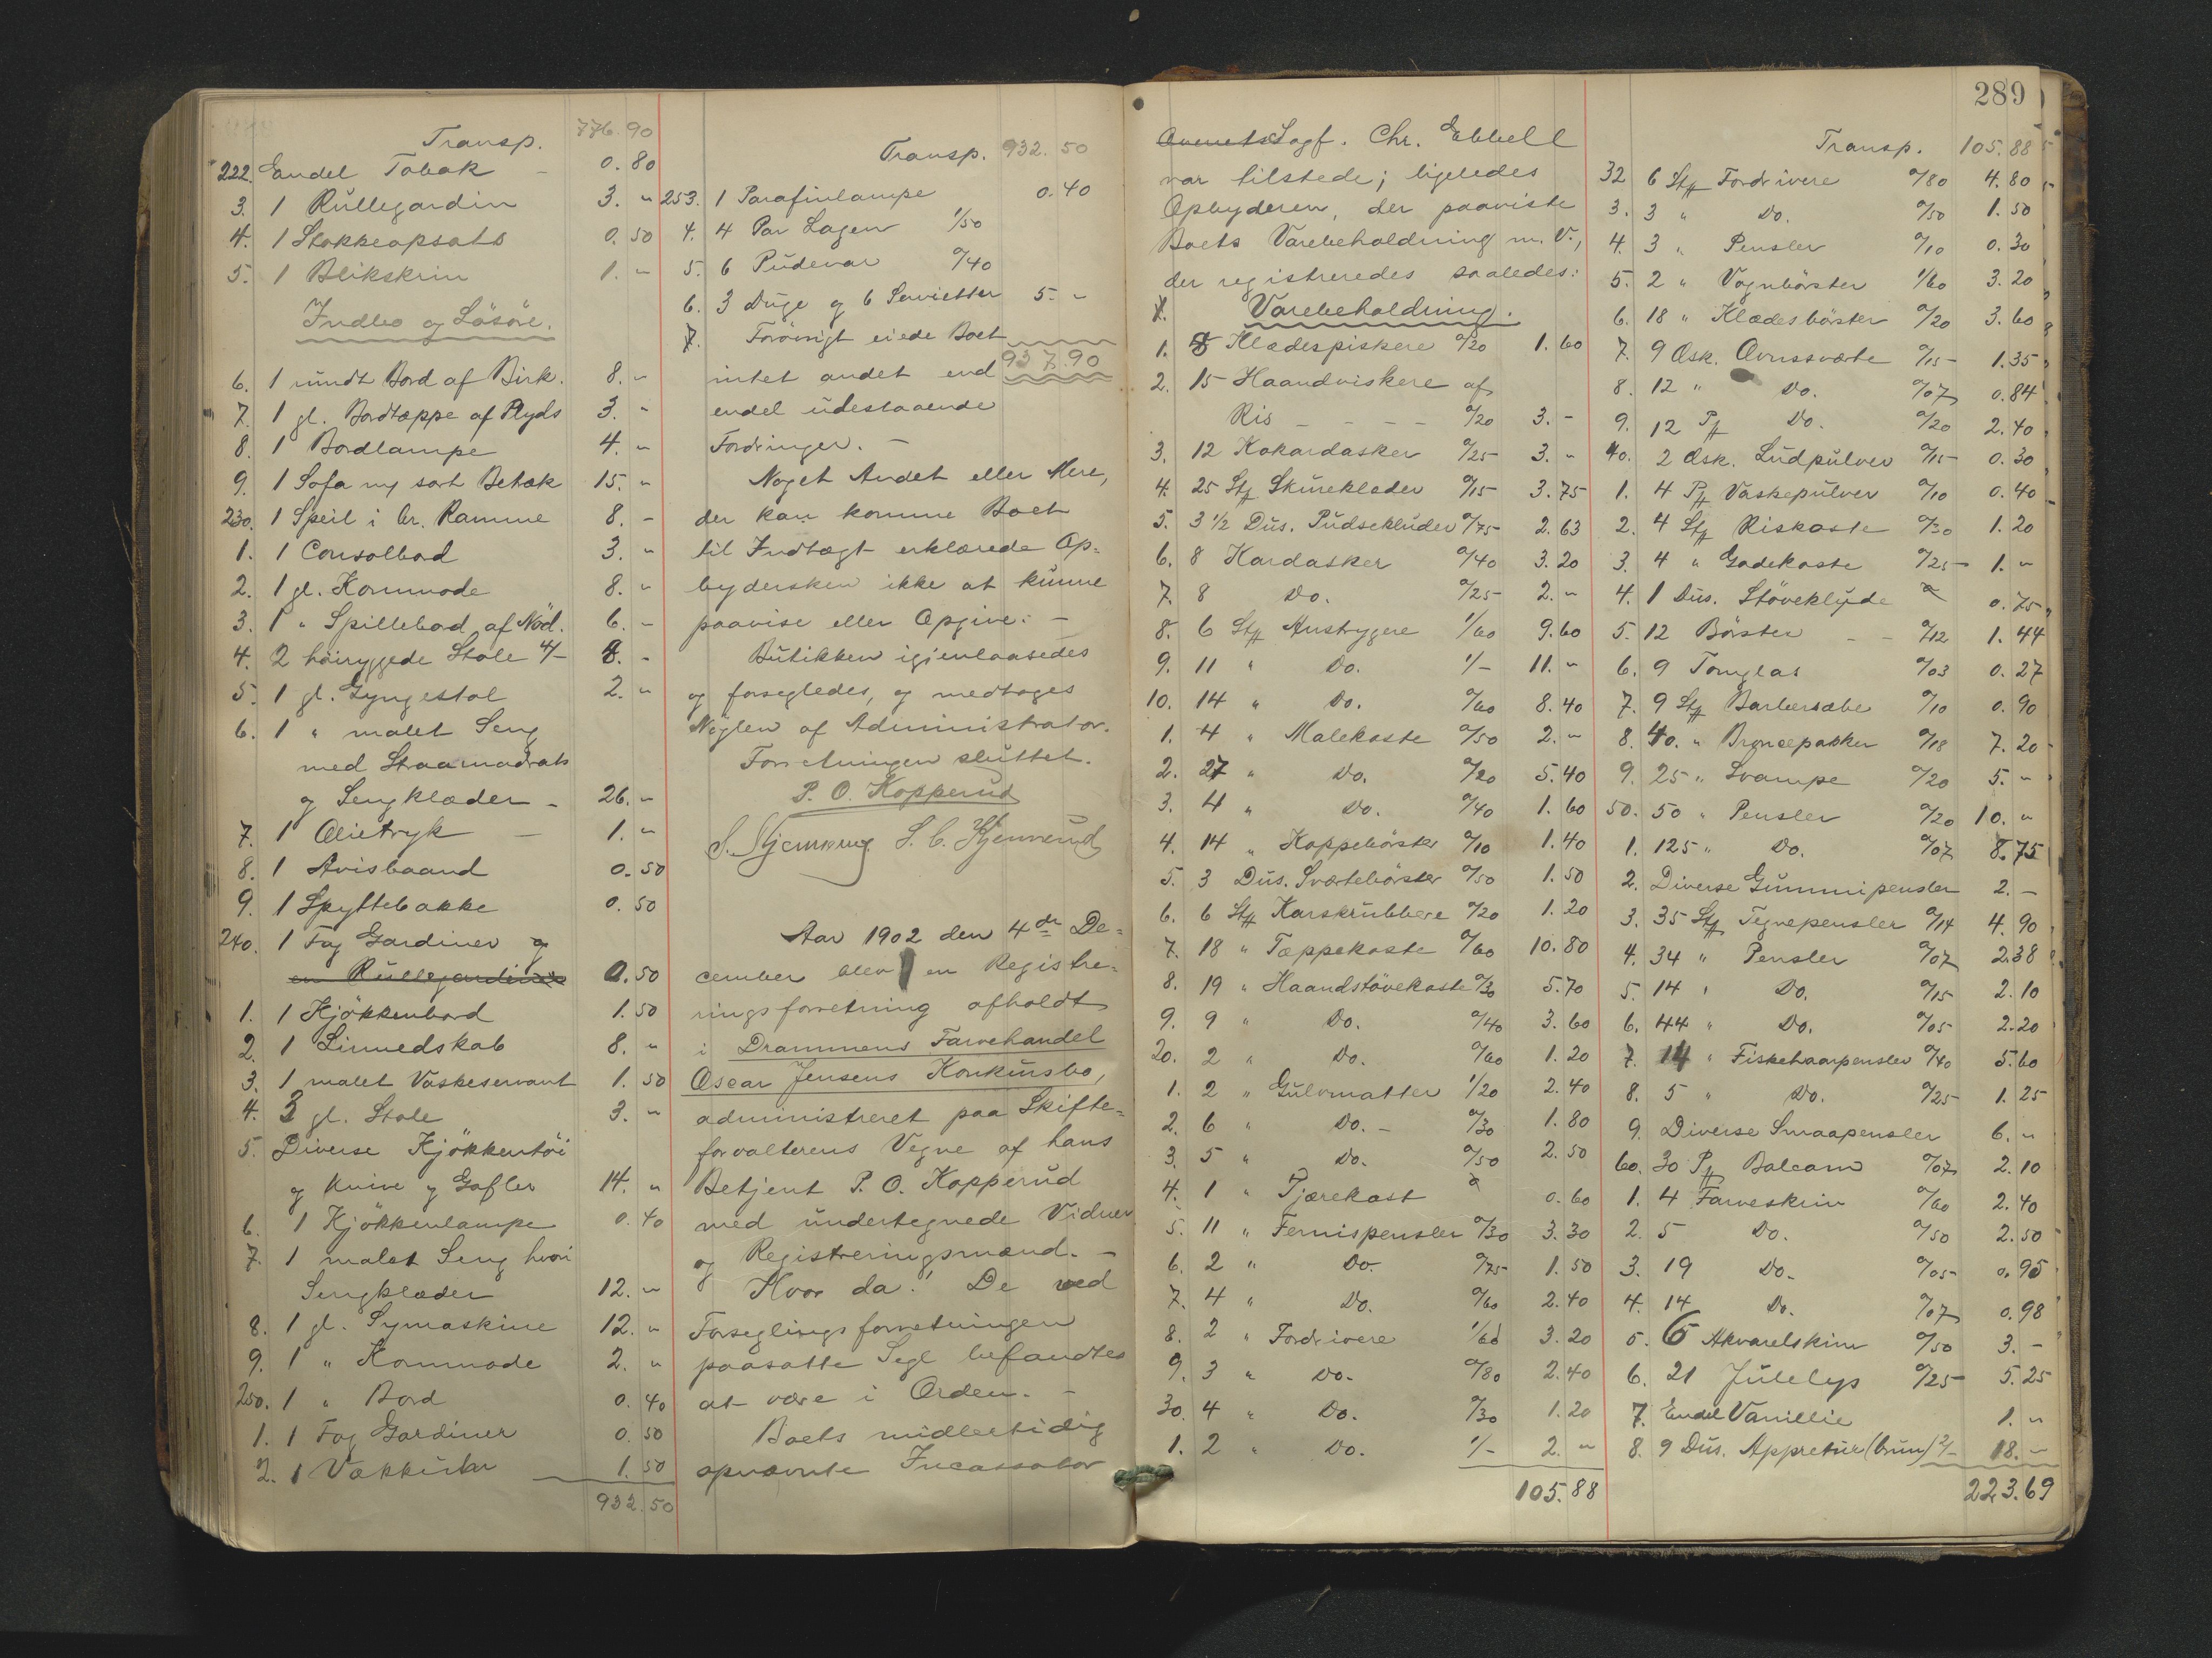 Transp. 776.90
222. Endel Tobak - 0.80
3. 1 Rullegardin 3. "
4. 1 Stokkeopsats 0.50
5. 1 Blikskrin 1. "
Indbo og Lösöre.
6. 1 rundt Bord af Birk. 8. "
7. 1 gl. Bordtæppe af Plyds 3. -
8. 1 Bordlampe 4. "
9. 1 Sofa ny sort Betæk 15. "
230. 1 Speil i br. Ramme 8. -
1. 1 Consolbord 3. "
2. 1 gl. Kommode 8. "
3. 1 " Spillebord af Nöd. 6. -
4. 2 höiryggede Stole 4/- 8. -
5. 1 gl. Gyngestol 2. "
6. 1 " malet Seng
med Straamadrats
og Sengklæder - 26. "
7. 1 Olietryk - 1. "
8. 1 Avisbaand 0.50
9. 1 Spyttebakke 0.50
240. 1 Fag Gardiner og
en Rullegardiner 0.50
1. 1 Kjökkenbord 1.50
2. 1 Linnedskab 8. "
3. 1 malet Vaskeservant 1.50
4. 3 gl. Stole 3. "
5. Diverse Kjökkentöi
og Knive og Gafler 14. "
6. 1 Kjökkenlampe 0.40
7. 1 malet Seng hvori
Sengklæder 12. "
8. 1 gl. Symaskine 12. "
9. 1 " Kommode 2. "
250. 1 " Bord 0.40
1. 1 Fag Gardiner 0.50
2. 1 Vækkeuhr 1.50
932.50
Transp. 932.50
253. 1 Parafinlampe 0.40
4. 4 Par Lagen 1/50
5. 6 Pudevar a/40
6. 3 Duge og 6 Servietter 5. -
7. Forövrigt eiede Boet
intet andet end 937.90
endel udestaaende
Fordringer. -
Noget Andet eller Mere,
der kan komme Boet
til Indtægt erklærede Op=
bydersken ikke at kunne
paavise eller Opgive. -
Butikken igjenlaasedes
og forsegledes, og medtoges
Nöglen af Administrator.
Forretningen sluttet.
P. O. Kopperud
S. C. Hjemerud
Aar 1902 den 4de De=
cember blev en Registre=
ringsforretning afholdt
i Drammens Farvehandel
Oscar Jensens Konkursbo,
administreret paa Skifte=
forvalterens Vegne af hans
Betjent P. O. Kopperud
med undertegnede Vidner
og Registreringsmænd. -
Hvor da! De ved
Forseglingsforretningen
paasatte Segl befandtes
at være i Orden. -
Boets midlertidig
opnævnte Incassator
289
Sagf. Chr. Ebbell
var tilstede; ligeledes
Opbyderen, der paaviste
Boets Varebeholdning m. V.,
der registreredes saaledes:
Varebeholdning.
1. 8 Klædespiskere a/20 1.60
2. 15 Haandviskere af
Ris - - - - a/20 3. -
3. 12 Kokardasker a/25 3. "
4. 25 Stk Skureklæder a/15 3.75
5. 3 1/2 Dus. Pudsekluder a/75 2.63
6. 8 Kardasker a/40 3.20
7. 8 Do. a/25 2. "
8. 6 Stk Anstrygere 1/60 9.60
9. 11 " Do. 1/- 11. "
10. 14 " Do. a/60 8.40
1. 4 " Malekoste a/50 2. "
2. 27 " Do. a/20 5.40
3. 4 " Do. a/40 1.60
4. 14 " Koppebörster a/10 1.40
5. 3 Dus. Sværtebörster a/50 1.50
6. 6 Stk Karskrubbere a/20 1.20
7. 18 " Tæppekoste a/60 10.80
8. 19 " Haandstövekoste a/30 5.70
9. 9 " Do. a/40 3.60
20. 2 " Do. a/60 1.20
1. 2 " Gulvmatter 1/20 2.40
2. 6 " Do. - a/30 1.80
3. 5 " Do. a/50 2.50
4. 1 " Tjærekost a 0.60
5. 11 " Fernispensler a/30 3.30
6. 2 " Do. a/75 1.50
7. 4 " Do. a/60 2.40
8. 2 " Fordrivere 1/60 3.20
9. 3 " Do. a/80 2.40
30. 4 " Do. a/30 1.20
1. 2 " Do. 1/- 2. "
105.88
Transp. 105.88
32 6 Stk Fordrivere a/80 4.80
3. 3 " Do. a/50 1.50
4. 3 " Pensler a/10 0.30
5. 2 " Vognbörster 1/60 3.20
6. 18 " Klædesbörster a/20 3.60
7. 9 Æsk. Ovnssværte a/15 1.35
8. 12 " Do. a/07 0.84
9. 12 Pk Do. a/20 2.40
40. 2 Æsk. Ludpulver a/15 0.30
1. 4 Pk Vaskepulver a/10 0.40
2. 4 Stk Riskoste a/30 1.20
3. 4 " Gadekoste a/25 1. "
4. 1 Dus. Stöveklude a 0.75
5. 12 Börster - - a/12 1.44
6. 9 Tomglas a/03 0.27
7. 9 Stk Barbersæbe a/10 0.90
8. 40. " Broncepakker a/18 7.20
9. 25 " Svampe a/20 5. "
50. 50 " Pensler a/20 10. "
1. 125 " Do. a/07 8.75
2. Diverse Gummipensler 2. -
3. 35 Stk Tegnepensler a/14 4.90
4. 34 " Pensler a/07 2.38
5. 14 " Do. a/15 2.10
6. 44 " Do. a/05 2.20
7. 14 " Fiskehaarpensler a/40 5.60
8. 5 " Do. a/25 1.25
9. Diverse Smaapensler 6. "
60. 30 Pk Balcam a/07 2.10
1. 4 Farveskrin a/60 2.40
2. 5 Do. a/50 2.50
3. 19 Do. a/05 0.95
4. 14 Do. a/07 0.98
5. 6 Akvarelskrin a/50 3. -
6. 21 Julelys a/25 5.25
7. Endel Vanillie 1. "
8. 9 Dus. Appretur (brun) 2/- 18. -
223.69